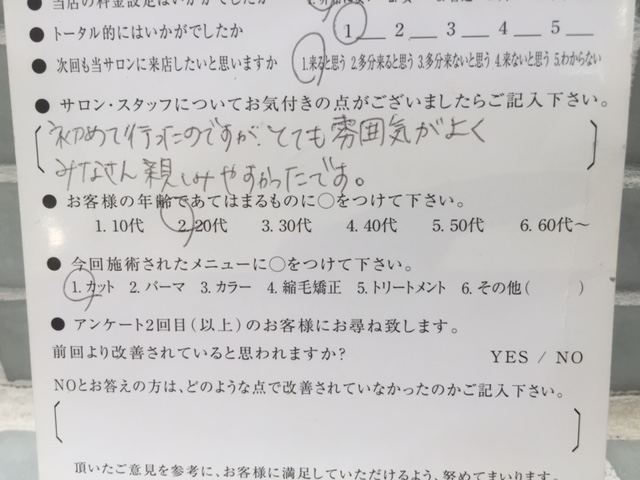 ● 当店の料金設定はいかがでしたか
● トータル的にはいかがでしたか 1 __ 2 __ 3 __ 4 __ 5 __
● 次回も当サロンに来店したいと思いますか 1.来ると思う 2.多分来ると思う 3.多分来ないと思う 4.来ないと思う 5.わからない
● サロン・スタッフについてお気付きの点がございましたらご記入下さい。
初めて行ったのですが、とても雰囲気がよく
みなさん親しみやすかったです。
● お客様の年齢であてはまるものに○をつけて下さい。
1.10代 2.20代 3.30代 4.40代 5.50代 6.60代～
● 今回施術されたメニューに○をつけて下さい。
1.カット 2.パーマ 3.カラー 4.縮毛矯正 5.トリートメント 6.その他( )
● アンケート2回目(以上)のお客様にお尋ね致します。
前回より改善されていると思われますか? YES / NO
NOとお答えの方は、どのような点で改善されていなかったのかご記入下さい。
頂いたご意見を参考に、お客様に満足していただけるよう、努めてまいります。